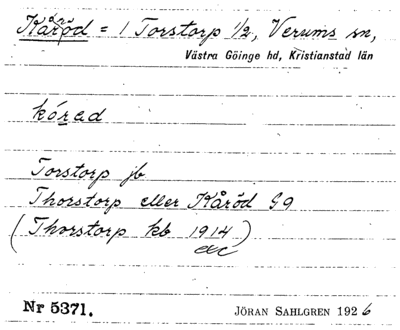 Kåröd = 1 Torstorp 1/2, Verums sn,
Västra Göinge hd, Kristianstad län
kó̱red
Torstorp jb
Thorstorp eller Kåröd G9
(Thorstorp kb 1914)
etc
Nr 5371. JÖRAN SAHLGREN 1926